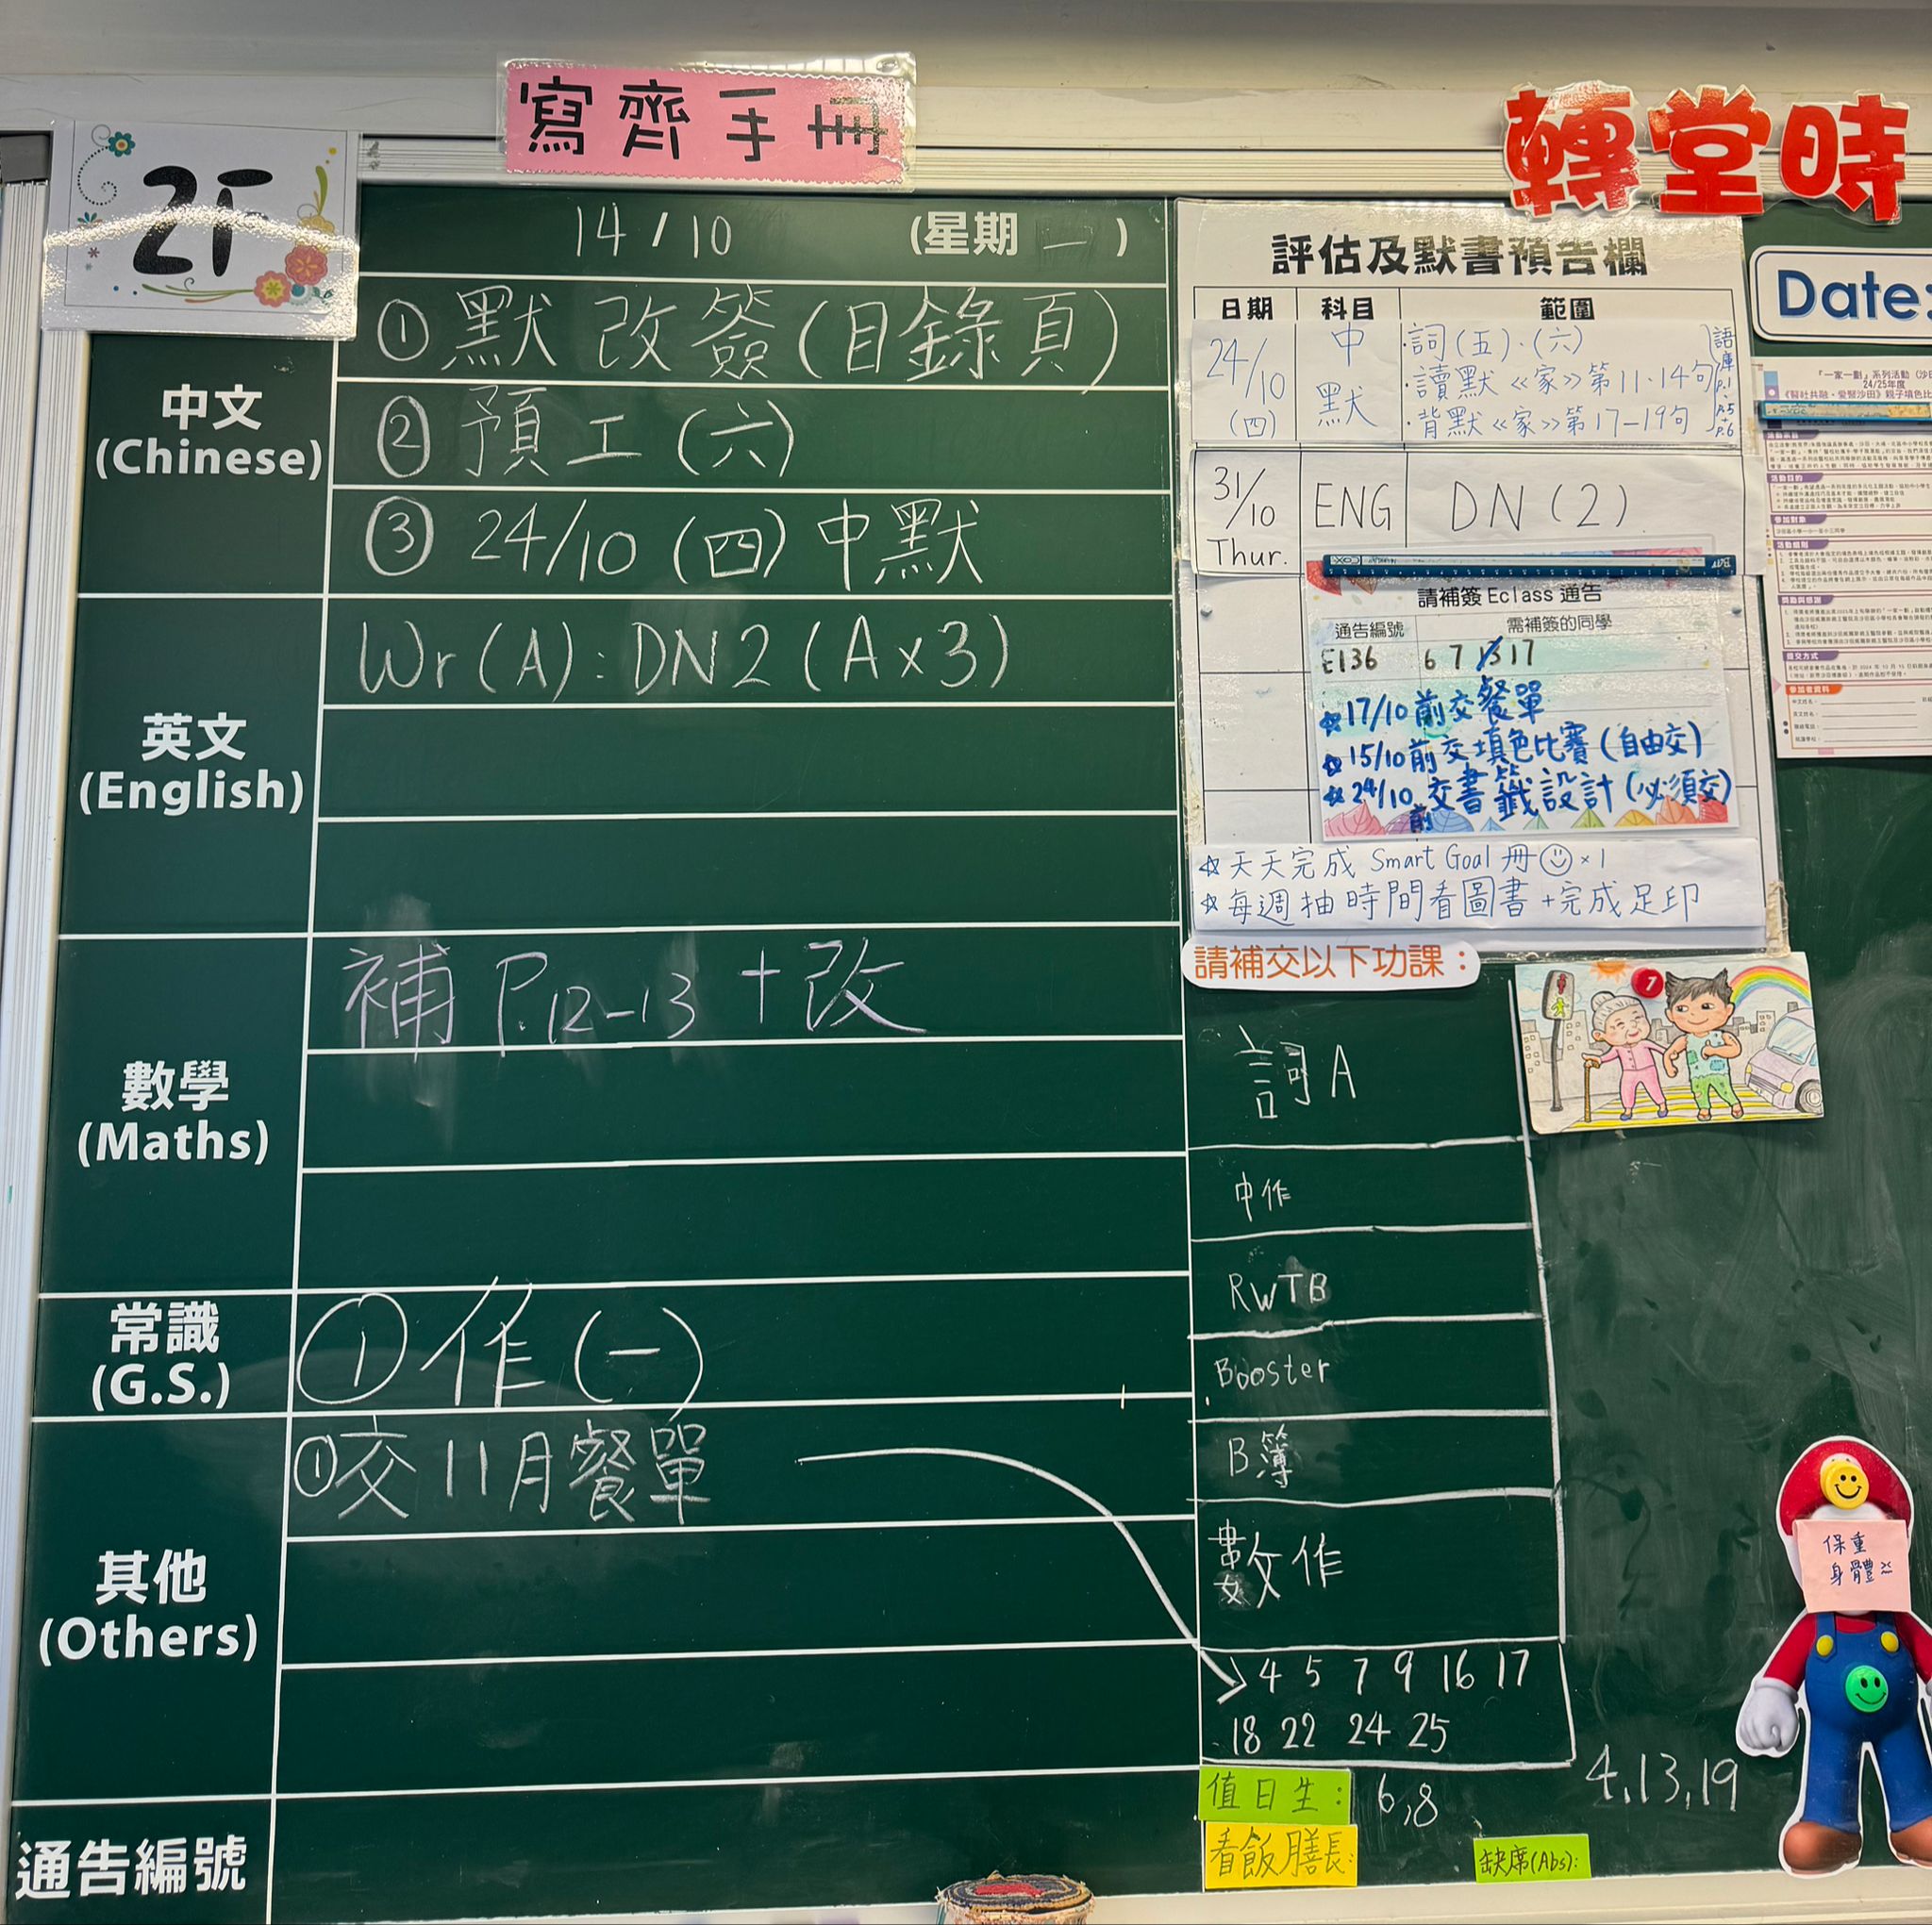 寫齊手冊
轉堂時
2F
14/10 (星期一)
中文
(Chinese)
①默改簽(目錄頁)
②預工(六)
③24/10(四)中默
英文
(English)
Wr(A):DN2(A×3)
數學
(Maths)
補P.12-13+改
常識
(G.S.)
①作(一)
其他
(Others)
①交11月餐單
通告編號
評估及默書預告欄
日期 科目 範圍
24/10 (四) 中默
·詞(五)·(六)
·讀默《家》第11-14句
·背默《家》第17-19句
語庫 P.1, P.5 + P.6
31/10 Thur. ENG DN(2)
請補簽Eclass通告
通告編號 需補簽的同學
E136 6 7 13 17
☆17/10前交餐單
☆15/10前交填色比賽(自由交)
☆24/10前交書籤設計(必須交)
☆天天完成 Smart Goal 冊☺×1
☆每週抽時間看圖書+完成足印
請補交以下功課:
詞A
中作
RWTB
Booster
B簿
數作
4 5 7 9 16 17
18 22 24 25
值日生: 6,8
4,13,19
看飯膳長:
缺席(Abs):
Date:
「一家一劃」系列活動
24/25年度
活動目的
參加對象
活動細則
提交方式
參加者資料
保重
身體